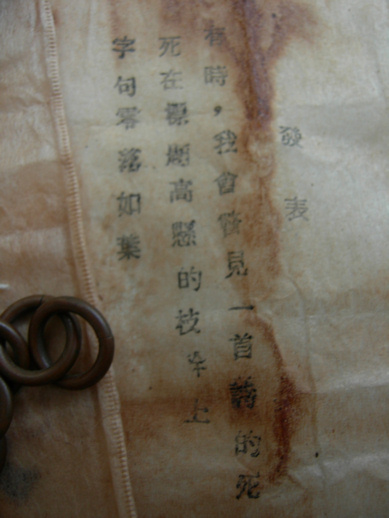 發表
有時，我會看見一首詩的死
死在標題高懸的枝竿上
字句零落如葉